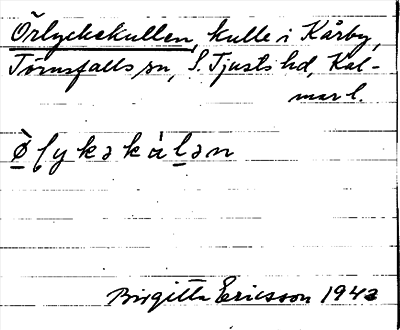 Örlyckekullen, kulle i Kårby,
Törnsfalls sn, S. Tjusts hd, Kal-
mar l.
ø̀ḷykəkálən
Birgitta Ericsson 1942